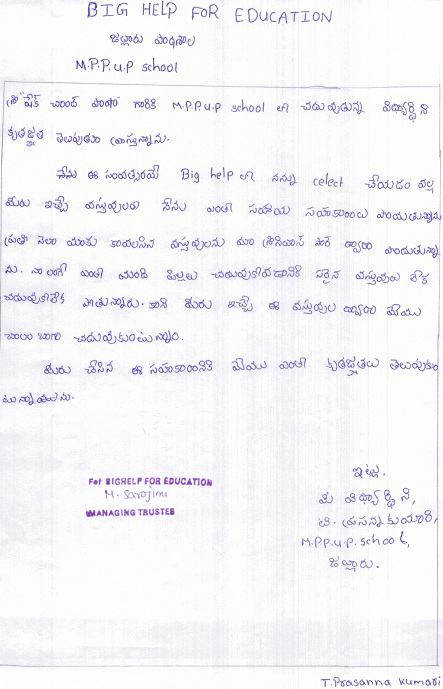 BIG HELP FOR EDUCATION
జల్లూరు పాఠశాల
M.P.P.U.P school
షేక్ చాంద్ పాషా గారికి M.P.P.U.P school లో చదువుతున్న విద్యార్థిని
కృతజ్ఞత తెలుపుతూ వ్రాస్తున్నాను.
నేను ఈ సంవత్సరమే Big help లో నన్ను celect చేయడం వల్ల
మీరు ఇచ్చే వస్తువులతో నేను ఎంతో సహాయ సహకారాలు పొందుతున్నాను
ప్రతి నెల మాకు కావలసిన వస్తువులను మా శ్రీనివాస్ సార్ ద్వారా పొందుతున్నా
ను. నాలాగే ఎంతో మంది పిల్లలు చదువుకోవడానికి సరైన వస్తువులు లేక
చదువుకోలేక పోతున్నారు. కాని మీరు ఇచ్చే ఈ వస్తువుల ద్వారా మేము
చాలా బాగా చదువుకుంటున్నాం.
మీరు చేసిన ఈ సహకారానికి మేము ఎంతో కృతజ్ఞతలు తెలుపుకుం
టున్నాము.
For BIGHELP FOR EDUCATION
M. Sarojini
MANAGING TRUSTEE
ఇట్లు,
మీ విద్యార్థిని,
టి. ప్రసన్న కుమారి,
M.P.P.U.P. school,
జల్లూరు.
T.Prasanna Kumari